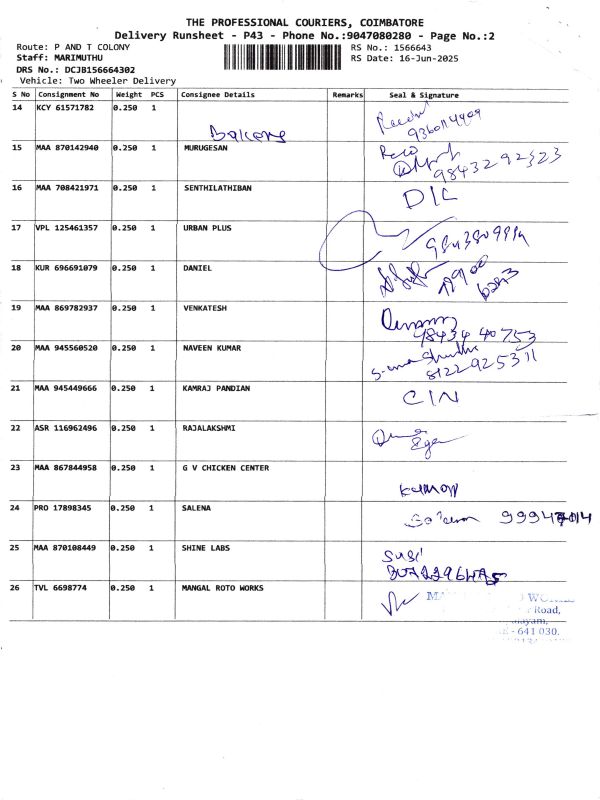 THE PROFESSIONAL COURIERS, COIMBATORE
Delivery Runsheet - P43 - Phone No.:9047080280 - Page No.:2
Route: P AND T COLONY
RS No.: 1566643
Staff: MARIMUTHU
RS Date: 16-Jun-2025
DRS No.: DCJB156664302
Vehicle: Two Wheeler Delivery
S No Consignment No Weight PCS Consignee Details Remarks Seal & Signature
14 KCY 61571782 0.250 1
15 MAA 870142940 0.250 1 MURUGESAN
9843292323
16 MAA 708421971 0.250 1 SENTHILATHIBAN
D/L
17 VPL 125461357 0.250 1 URBAN PLUS
18 KUR 696691079 0.250 1 DANIEL
19 MAA 869782937 0.250 1 VENKATESH
98434 40753
20 MAA 945560520 0.250 1 NAVEEN KUMAR
8122925311
21 MAA 945449666 0.250 1 KAMRAJ PANDIAN
C/N
22 ASR 116962496 0.250 1 RAJALAKSHMI
23 MAA 867844958 0.250 1 G V CHICKEN CENTER
24 PRO 17898345 0.250 1 SALENA
25 MAA 870108449 0.250 1 SHINE LABS
26 TVL 6698774 0.250 1 MANGAL ROTO WORKS
Road,
- 641 030.